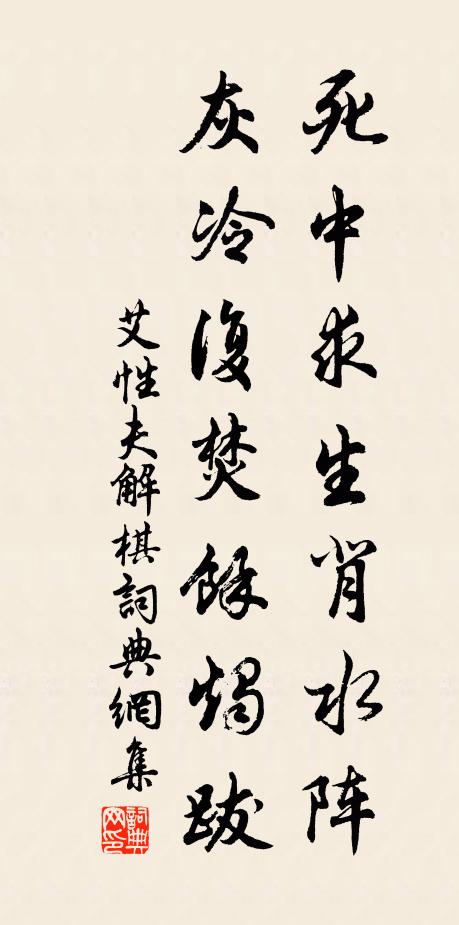 死中求生背水阵
灰冷復焚餘燭跋
艾性夫解棋詞典網集
詞典网印